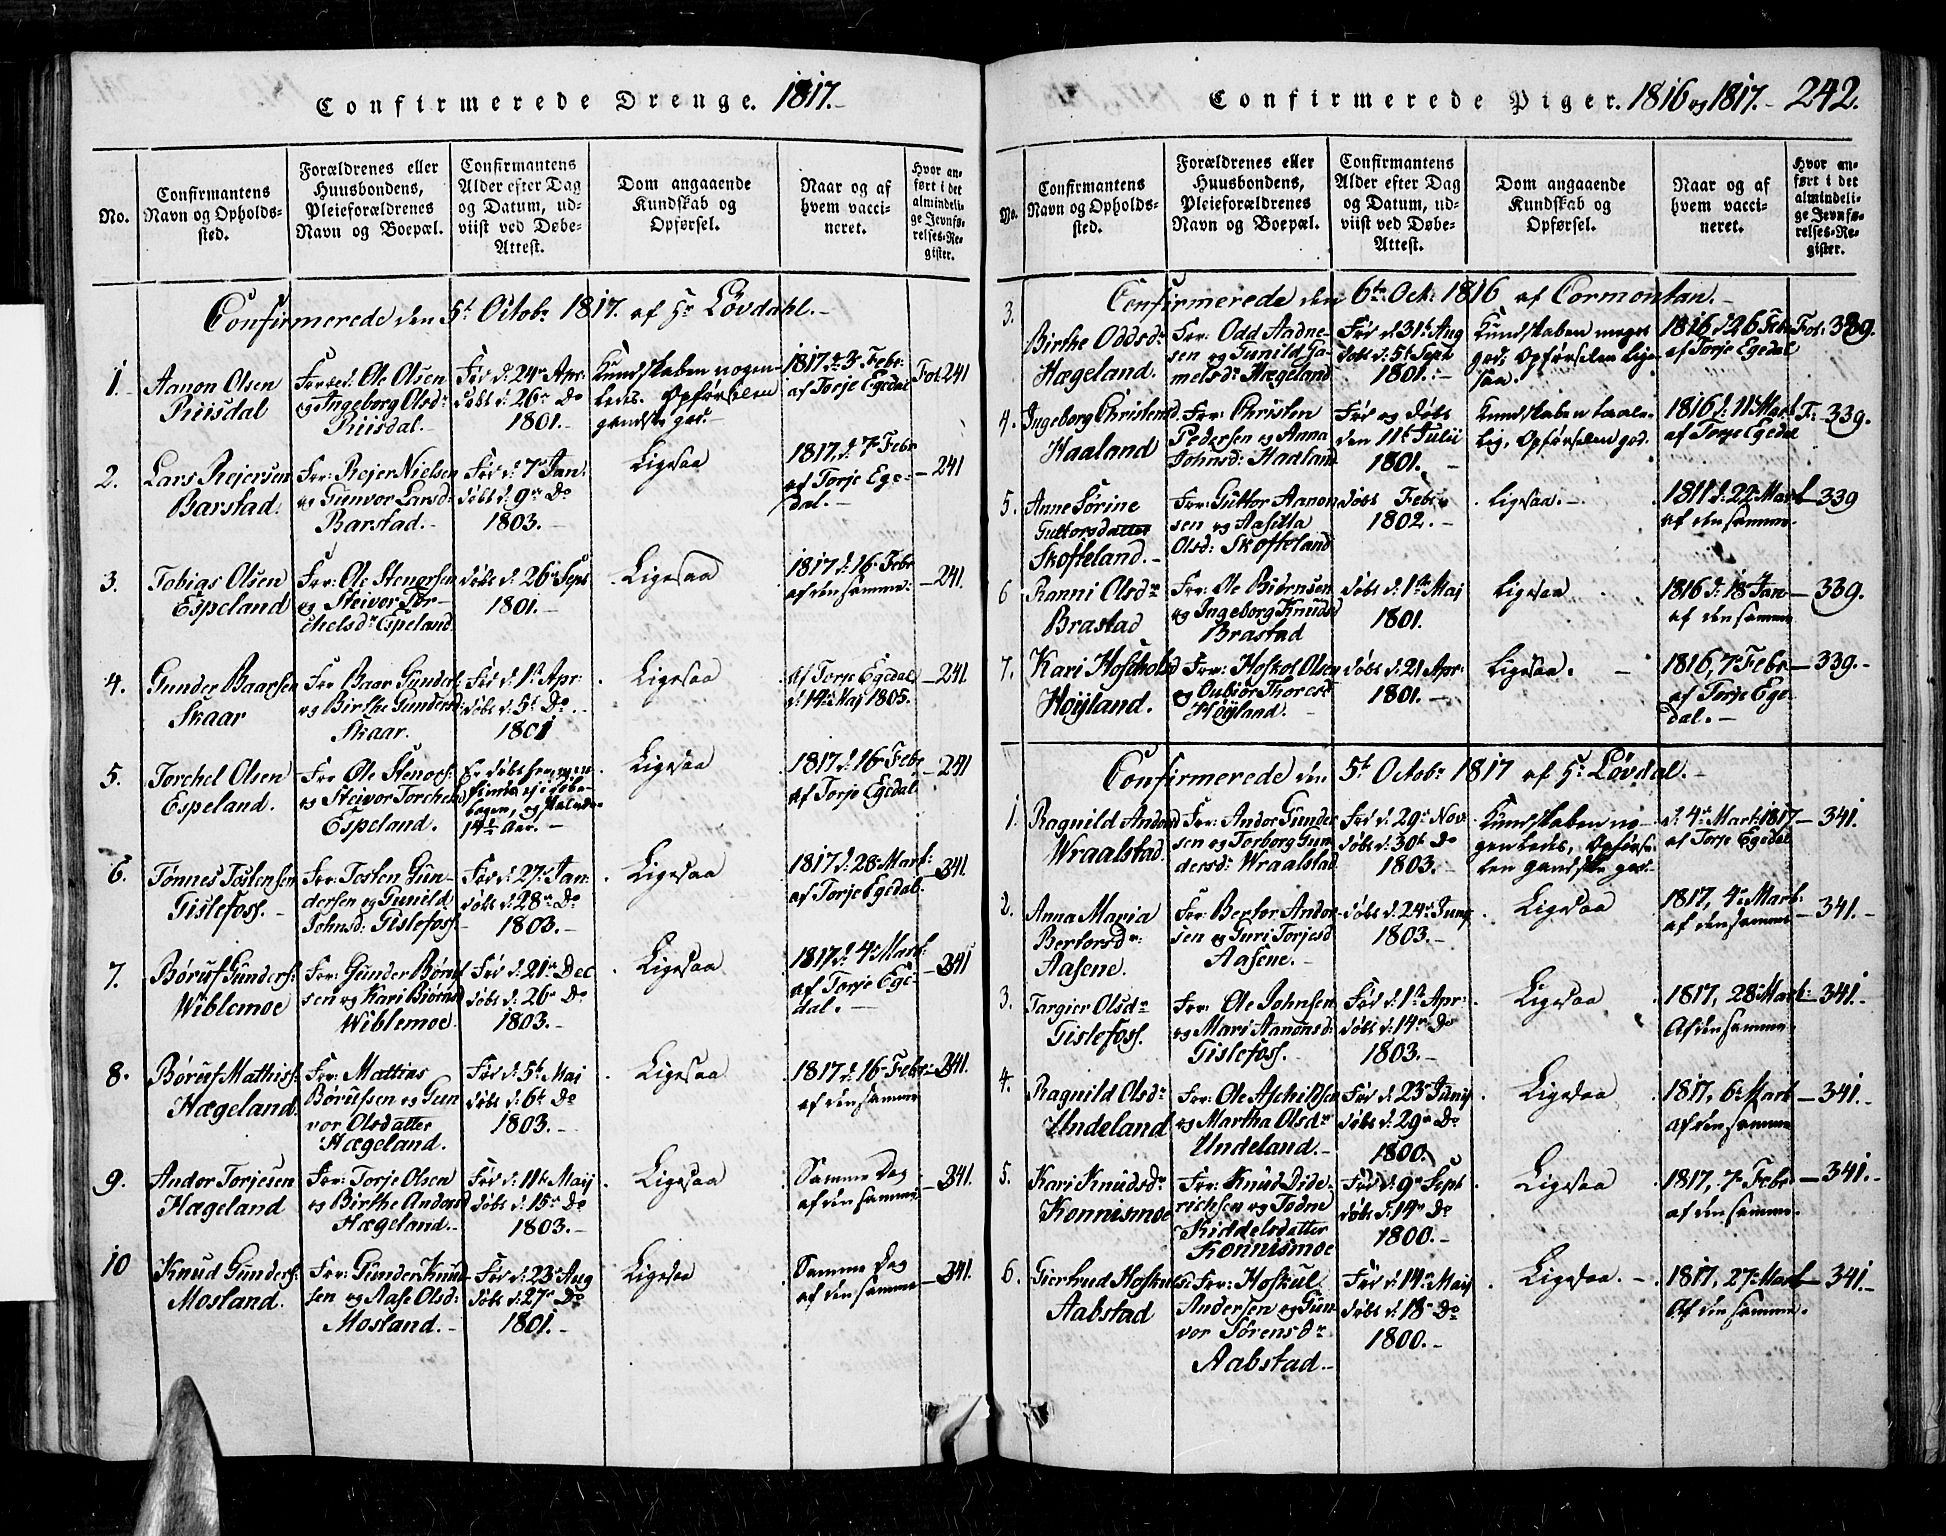 Confirmerede Drenge. 1817.-
No.
Confirmantens Navn og Opholdssted.
Forældrenes eller Huusbondens, Pleieforældrenes Navn og Boepæl.
Confirmantens Alder efter Dag og Datum, udviist ved Døbe-Attest.
Dom angaaende Kundskab og Opførsel.
Naar og af hvem vaccineret.
Hvor anført i det almindelige Jevnførelses-Register.
Confirmerede den 5t Octobr 1817. af Hr Løvdahl.-
1. Aanon Olsen
Riisdal
Ole Olsen
og Ingeborg Olsdr
Riisdal.-
Fød d: 24de Apr.
døbt d: 26de Do
1801.-
Kundskaben nogenledes. Opførselen
gandske god.-
1817 d: 3 Febr
af Torje Egedal
Fol 241
2. Lars Rejersen
Barstad.
For: Rejer Nielsen
og Gunvor Larsd:
Barstad.-
Fød d: 7de Jan.
døbt d: 9de Do
1803.-
Ligesaa
1817 d. 7de Febr
af Torje Egedal.-
241
3. Tobias Olsen
Espeland
For: Ole Stenersen
og Steivor Torchelsdr Espeland.
døbt d: 26de Sept
1801.-
Ligesaa
1817 d: 16 Febr
af den samme.
241.
4. Gunder Baarsen
Skaar
For: Baar Gunders.
og Birthe Gundersd:
Skaar.-
Fød d: 1te Apr:
døbt d: 5t Do.
1801
Ligesaa
Af Torje Egedal
d: 14de Maj 1805.
241.
5. Torchel Olsen
Espeland.
For Ole Steners:
og Steivor Torchelsd
Espeland.
14½ Aar.-
Ligesaa
1817 d: 16 Febr
af Torje Egedal.
241
6. Tønnes Tostensen
Gislefoss.-
For: Tosten Gundersen og Gunild
Johnsd: Gislefoss.
Fød d: 27de Jan
døbt d: 28de Do
1803.-
Ligesaa
1817 d: 28de Mart:
af Torje Egedal.
341.
7. Børuf Gunders:
Wiblemoe
For: Gunder Børufsen og Kari Biørnsd
Wiblemoe.
Fød d: 21de Dec
døbt d: 26de Do
1803.-
Ligesaa
1817 d: 4de Mart:
af Torje Egedal.-
341
8. Børuf Mathiss:
Hægeland.
For: Mattias
Børufsen og Gunvor Olsdatter
Hægeland.
Fød d: 5t Maj
døbt d: 6t Do
1803.-
Ligesaa
1817 d. 16 Febr
af den samme
341.
9. Ander Torjesen
Hægeland
For: Torje Olsen
og Birthe Andersd
Hægeland.-
Fød d: 11te Maij
døbt d: 15de Do
1803.-
Ligesaa
Samme Dag
af den samme
341.
10 Knud Gunders:
Mosland.
For: Gunder Knudsen og Aase Olsd:
Mosland.-
Fød d: 23de Aug
døbt d: 27de Do
1801.-
Ligesaa
Samme Dag
af den samme
341.
Confirmerede Piger. 1816 og 1817.- 242.
No.
Confirmantens Navn og Opholdssted.
Forældrenes eller Huusbondens, Pleieforældrenes Navn og Boepæl.
Confirmantens Alder efter Dag og Datum, udviist ved Døbe-Attest.
Dom angaaende Kundskab og Opførsel.
Naar og af hvem vaccineret.
Hvor anført i det almindelige Jevnførelses-Register.
Confirmerede den 6te Oct: 1816 af Cormontan.-
3. Birthe Oddsdr
Hægeland.
For: Odd Aadnesen og Gunild Gamelsdr Hægeland
Fød d: 31t Aug
døbt d: 5t Sept
1801.-
Kundskaben meget
god; Opførselen ligesaa.
1816 d 26 Feb
af Torje Egedal
Fol: 339.
4. Ingeborg Christensd
Haaland
For: Christen
Pedersen og Anna
Johnsd: Haaland
Fød og døbt
den 11te Julii
1801.-
Kundskaben taalelig, Opførselen god.
1816 d: 11 Mart
af Torje Egedal
F: 339.
5. Anne Sørine
Guttorsdatter
Skofteland.-
For: Guttor Aanonsen og Aasilla
Olsd: Skofteland
døbt Febr
1802.-
Ligesaa.-
1811 d: 22 Mart
af den samme.
339
6 Ranni Olsdr
Brastad
For: Ole Biørnsen
og Ingeborg Knudsd
Brastad
døbt d: 1te Maij
1801.
Ligesaa
1816 d: 18 Jan
af den samme
339.
7. Kari Hoskolsd
Høyland.
For: Hoskol Olsen
og Oubiør Thoresd
Høyland.-
døbt d: 21 Apr:
1801.-
Ligesaa.
1816, 7de Febr
af Torje Egedal.-
339.-
Confirmerede den 5t Octobr 1817 af Hr Løvdal.-
1. Ragnild Andersd
Wraalstad.
For: Ander Gundersen og Torborg Gundersd: Wraalstad
Fød d: 29de Nov
døbt d: 30t Do
1803.-
Kundskaben nogenledes, Opførselen gandske god.-
d. 4de Mart: 1817
af Torje Egedal
341.
2. Anna Maria
Bertorsdr
Aasene.
For: Bertor Andorsen og Guri Torjesd
Aasene.-
døbt d: 24de Junij
1803.-
Ligesaa
1817, 4de Mart
af den samme
341.-
3. Targier Olsdr
Gislefoss.
For: Ole Johnsen
og Mari Aanonsd:
Gislefoss.-
Fød d: 1te Apr:
døbt d: 14de Do
1803.-
Ligesaa
1817, 28 Mart:
Af den samme.
341.-
4. Ragnild Olsdr
Undeland
For: Ole Aschildsen
og Martha Olsdr
Undeland.-
Fød d: 23de Junij
døbt d: 29de Do
1800.
Ligesaa
1817, 6te Mart
af den samme
341.-
5. Kari Knudsdr
Konnismoe
For: Knud Diderichsen og Todne
Kiddelsdatter
Konnismoe
Fød d: 9de Sept
døbt d: 14de Do
1800.-
Ligesaa
1817, 7de Febr
af den samme.
341.-
6. Giertrud Hoskulsd:
Aabstad
For: Hoskul
Andersen og Gunvor Sørensdr
Aabstad.-
Fød d: 14de Maij
døbt d: 18de Do
1800.-
Ligesaa.-
1817, 27de Mart
Af den samme.
341.-